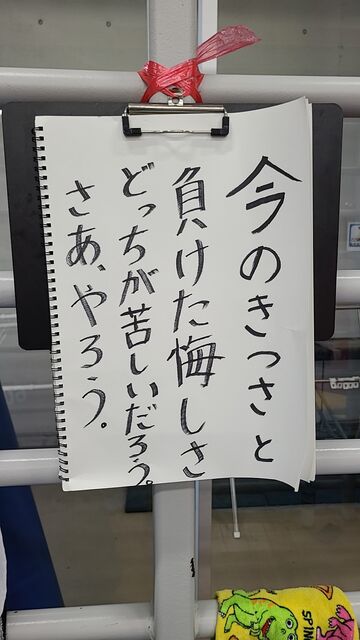 今のきつさと
負けた悔しさ
どっちが苦しいだろう。
さあ、やろう。
SPIN